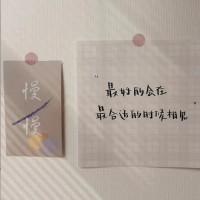 慢
慢
“最好的会在
最合适的时候相见
”